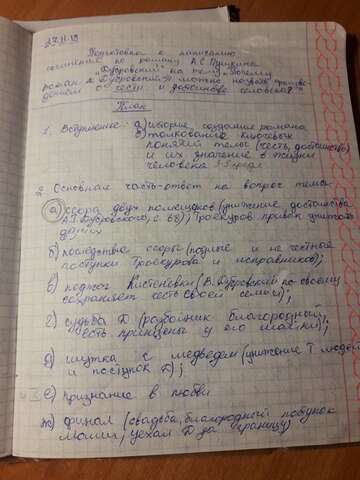 27.11.19
Подготовка к написанию
сочинения по роману А.С Пушкина
"Дубровский" на тему "Почему
роман "Дубровский" можно назвать произве-
дением о чести и достоинстве человека?"
План
1. Вступление: а) история создания романа
б) толкование ключевых
понятий темы (честь, достоинство)
и их значение в жизни
человека 3-5 пред
2. Основная часть-ответ на вопрос темы
а) ссора двух помещиков (унижение достоинства
А.Г Дубровского, с. 68); Троекуров привык унижать
других
б) последствия ссоры (подлые и не честные
поступки Троекурова и исправников);
в) поджог Кистенёвки (В. Дубровский по-своему
сохраняет честь своей семьи);
г) судьба Д (разбойник благородный,
есть принципы у его шайки);
д) шутка с медведем (унижение Т людей
и поступок Д);
е) признание в любви
ж) финал (свадьба, благородный поступок
Маши, уехал Д за границу)